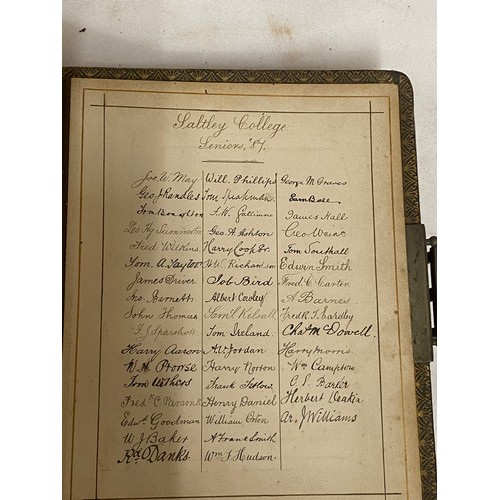 Saltley College.
Seniors, '87.
Jos. W. May Will. Phillips George M. Graves
Geo. J Randles Tom Speakman Sam Ball
Tom S. W. James Hall
Geo. A. Ashton Geo Weir
Fred Wilkins Harry Cook Tom Southall
Tom. A. Taylor H. W. Richardson Edwin Smith
James Driver Job Bird Fred C. Carter
Jno. Barnett Albert Cooley A Barnes
John Thomas Saml. Kelsall Fredk. T. Eardley
F. J. Sparshott Tom Ireland. Chas. Mc Dowell.
Harry Aaron A. W. Jordan Harry Morris
W. H. Prowse Harry Norton Wm Campton
Tom Withers Frank Fellows C. S. Parker
Fred K C. Parsons Henry Daniel Herbert Deakin
Edwd. Goodman William Orton Ar. J Williams
W J Baker A Frank Smith
Rd Danks Wm J. Hudson